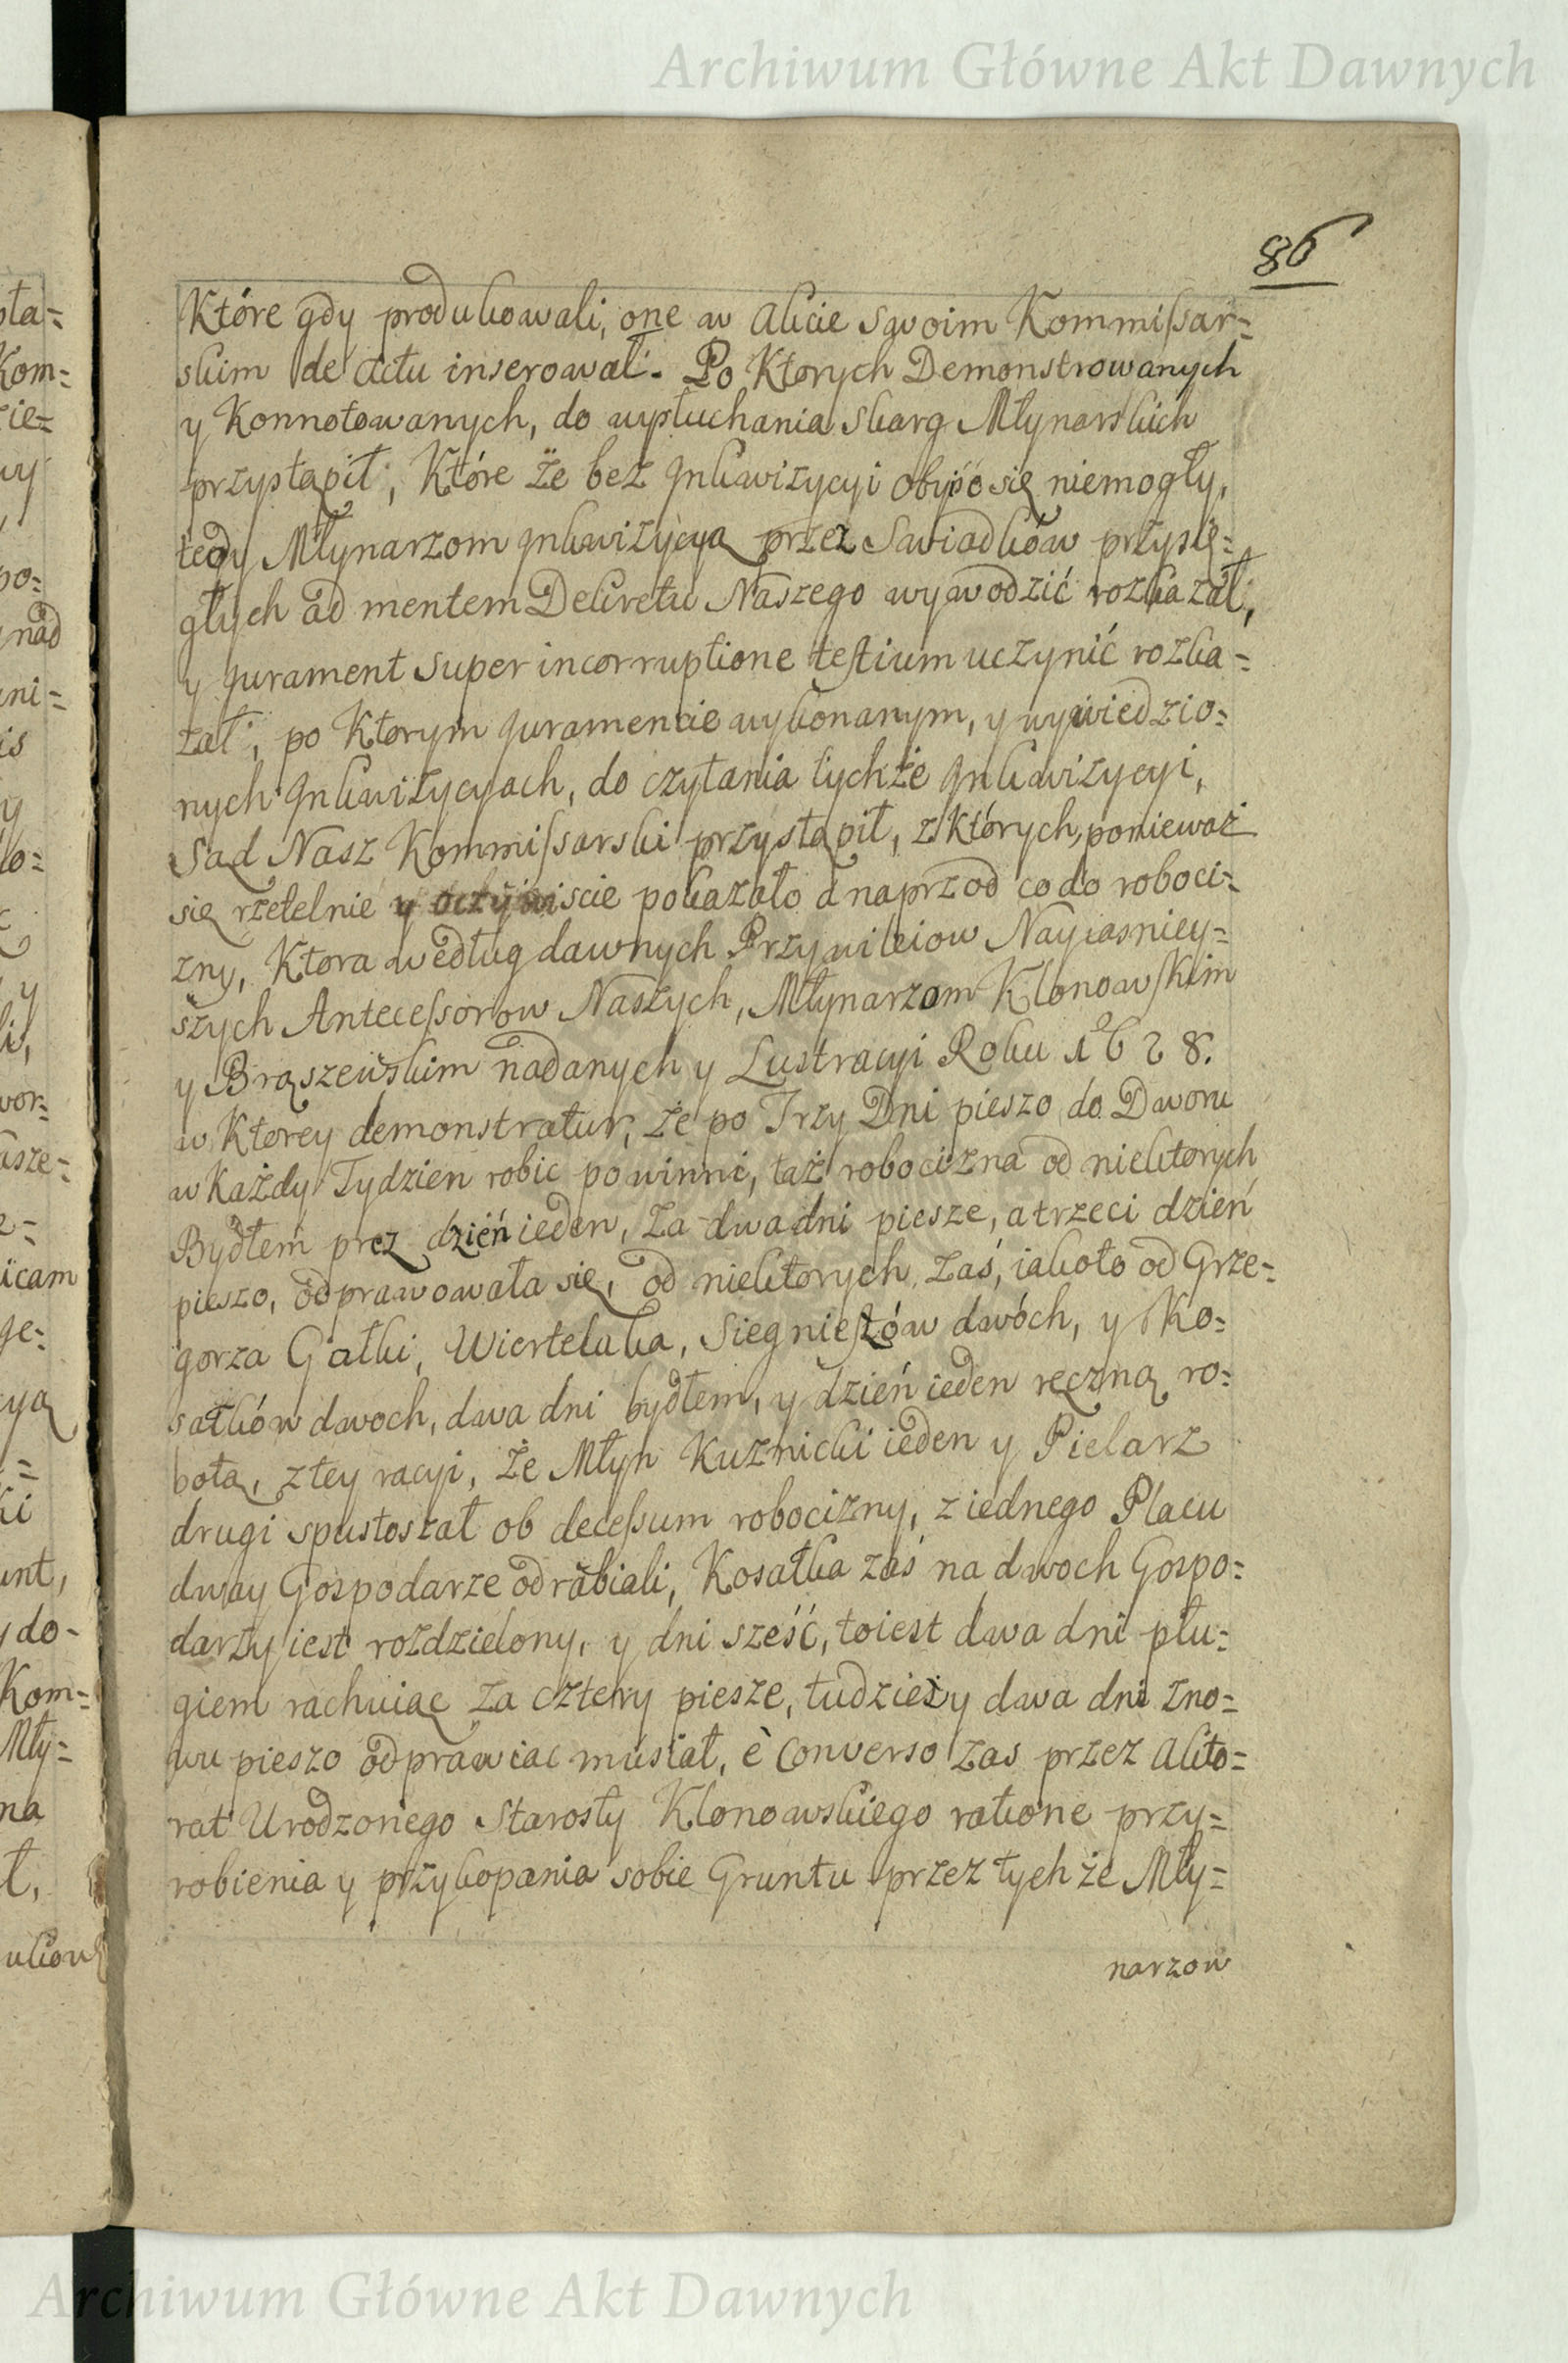 Archiwum Główne Akt Dawnych
86
Które gdy produkowali, one w Akcie swoim Kommissar=
skim de actu inserował. Po Ktorych Demonstrowanych
y Konnotowanych, do wysłuchania skarg Młynarskich
przystąpił, Które że bez Inkwizycyi obyśċ się niemogły,
tedy Młynarzom Inkwizycyą przez Swiadków przysię=
głych ad mentem Dekretu Naszego wywodzić rozkazał,
y Jurament super incorruptione testium uczynić rozka=
zał, po Ktorym Juramencie wykonanym, y wywiedzio=
nych Inkwizycyach, do czytania tychże Inkwizycyi,
Sąd Nasz Kommissarski przystąpił, z Których, ponieważ
się rzetelnie y oczywiscie pokazało a naprzod co do roboci=
zny, Ktora według dawnych Przywileiow Nayiasniey=
szych Antecessorow Naszych, Młynarzom Klonowskim
y Brąszewskim nadanych y Lustracyi Roku 1628.
w Ktorey demonstratur, że po Trzy Dni pieszo do Dworu
w Każdy Tydzien robic powinni, taż robocizna od niektorych
Bydłem prez dzień ieden, za dwa dni piesze, a trzeci dzień
pieszo, odprawowała się, od niektorych zaś, iakoto od Grze=
gorza Gałki, Wiertelaka, Siegniestów dwóch, y Ko=
sałków dwoch, dwa dni bydłem, y dzień ieden ręczną ro=
botą, z tey racyi, że Młyn Kuznicki ieden y Pielarz
drugi spustoszał ob decessum robocizny, z iednego Placu
dway Gospodarze odrabiali, Kosałka zaś na dwoch Gospo=
darzy iest rozdzielony, y dni sześć, toiest dwa dni płu=
giem rachuiąc za cztery piesze, tudzieży dwa dni zno=
wu pieszo odprawiac musiał, è Converso zas przez Akto=
rat Urodzonego Starosty Klonowskiego ratione przy=
robienia y przykopania sobie Gruntu przez tychże Mły=
narzow
Archiwum Główne Akt Dawnych